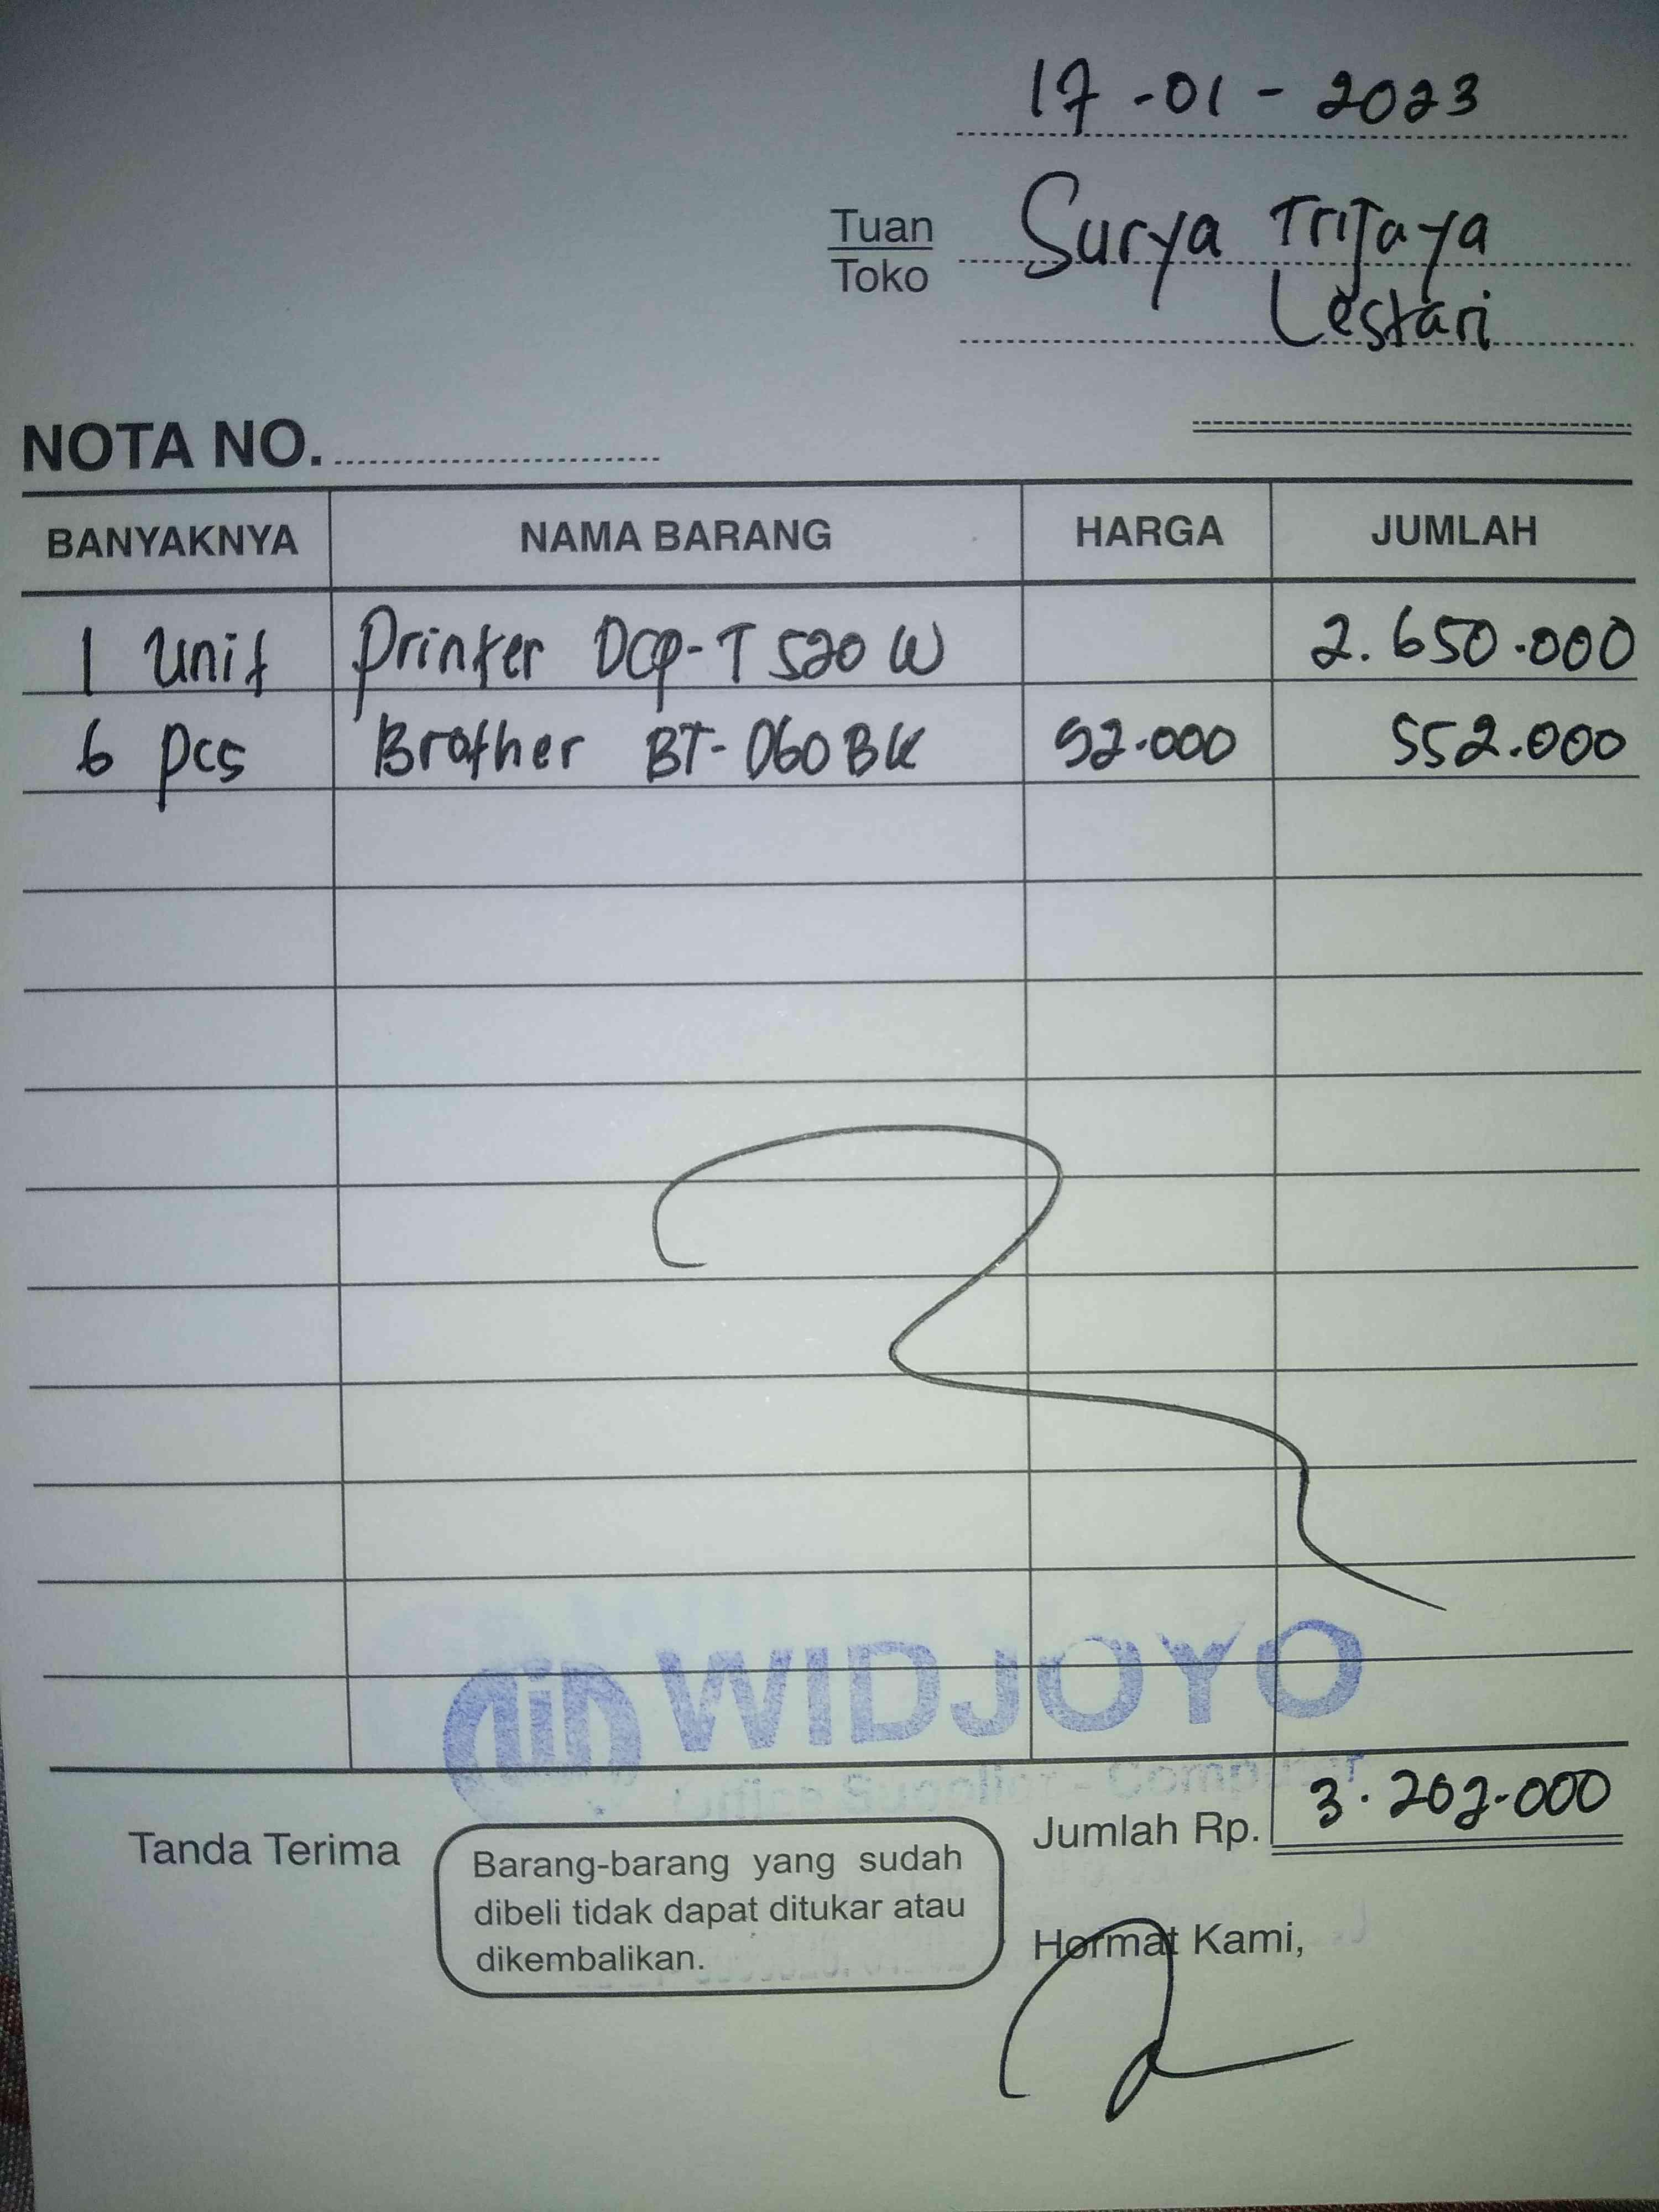 17-01-2023
Tuan
Toko
Surya Trijaya
Lestari
NOTA NO.
BANYAKNYA NAMA BARANG HARGA JUMLAH
1 Unit Printer DCP-T520W 2.650.000
6 pcs Brother BT-D60BK 92.000 552.000
WIDJOYO
Office Supplier - Computer
Tanda Terima
Barang-barang yang sudah
dibeli tidak dapat ditukar atau
dikembalikan.
Jumlah Rp. 3.202.000
Hormat Kami,